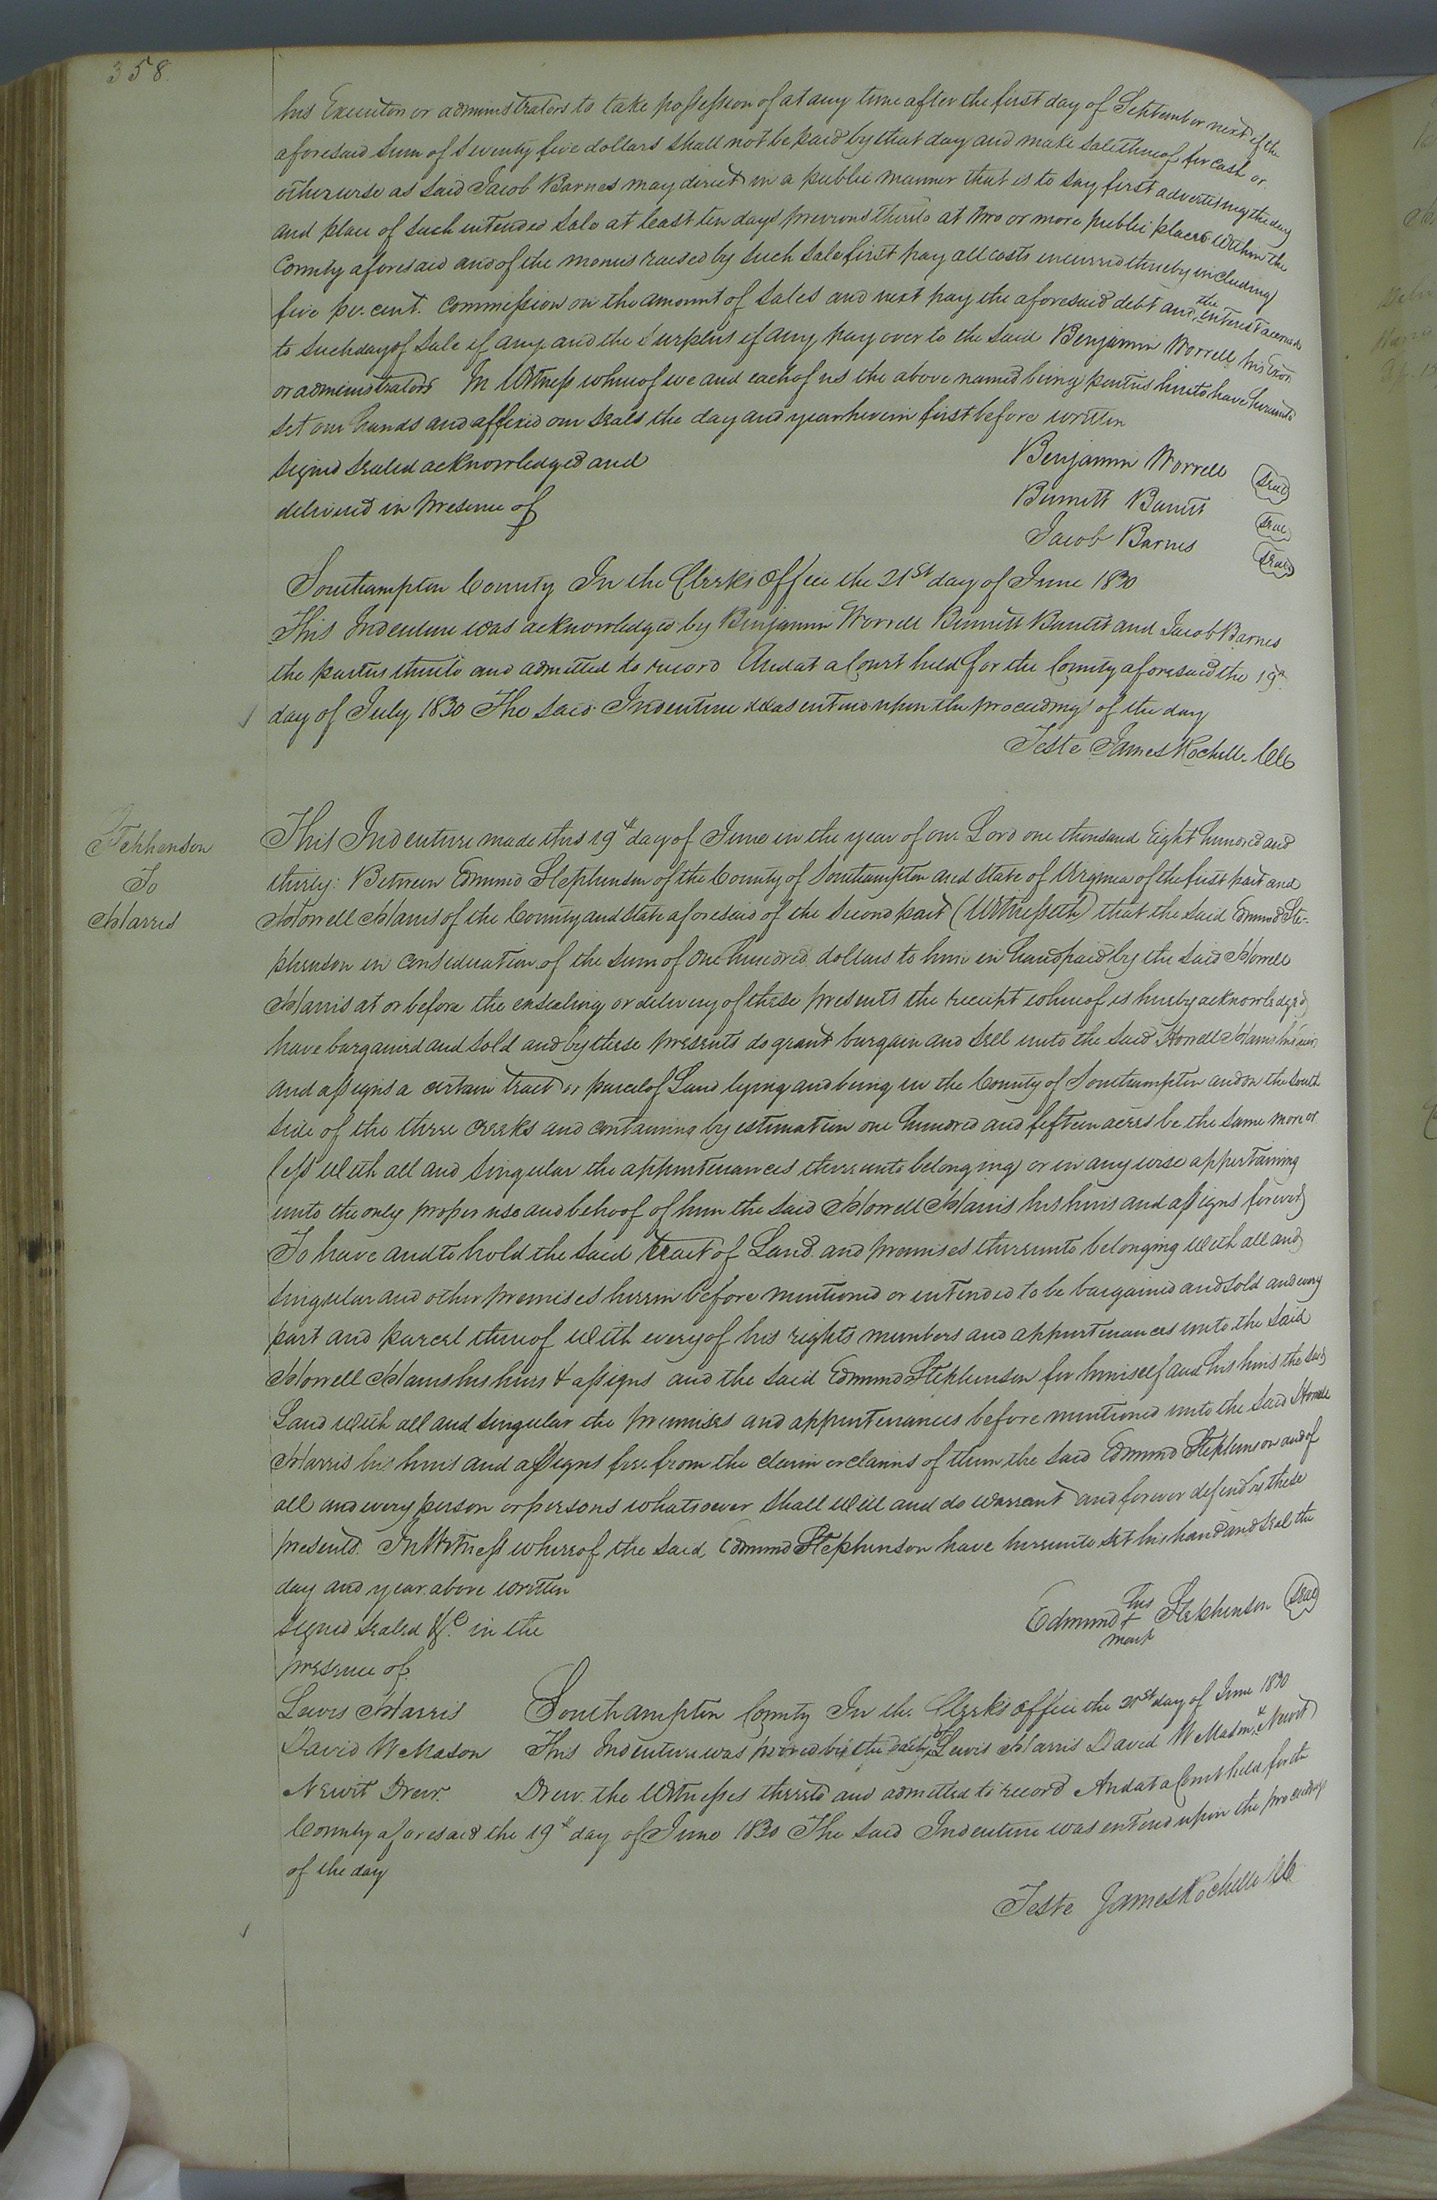 358.
his Executor or administrators to take possession of at any time after the first day of September next if the
aforesaid sum of Seventy five dollars shall not be paid by that day and make sale thereof for cash or
otherwise as said Jacob Barnes may direct in a public manner that is to say first advertising the day
and place of such intended sale at least ten days previous thereto at two or more public places within the
County aforesaid and of the monies raised by such sale first pay all costs incurred thereby including
five per. cent. commission on the amount of sales and next pay the aforesaid debt and the interest accrued
to such day of sale if any and the surplus if any pay over to the said Benjamin Worrell his Exors
or administrators In Witness whereof we and each of us the above named being parties hereto have hereunto
set our hands and affixed our seals the day and year herein first before written
Signed sealed acknowledged and
delivered in presence of
Benjamin Worrell Seal
Bennett Barrett Seal
Jacob Barnes Seal
Southampton County In the Clerks office the 21st day of June 1830
This Indenture was acknowledged by Benjamin Worrell Bennett Barrett and Jacob Barnes
the parties thereto and admitted to record And at a Court held for the County aforesaid the 19th
day of July 1830 The said Indenture was entered upon the proceedings of the day
Teste James Rochelle CC
Stephenson
To
Harris
This Indenture made this 19th day of June in the year of our Lord one thousand Eight hundred and
thirty: Between Edmund Stephenson of the County of Southampton and State of Virginia of the first part and
Howell Harris of the County and State aforesaid of the second part (Witnesseth) that the said Edmund Ste-
phenson in consideration of the sum of one hundred dollars to him in hand paid by the said Howell
Harris at or before the ensealing or delivery of these presents the receipt whereof is hereby acknowledged
have bargained and sold and by these presents do grant bargain and sell unto the said Howell Harris his heirs
and assigns a certain tract or parcel of Land lying and being in the County of Southampton and on the South
side of the three creeks and containing by estimation one hundred and fifteen acres be the same more or
less With all and singular the appurtenances thereunto belonging or in any wise appertaining
unto the only proper use and behoof of him the said Howell Harris his heirs and assigns forever
To have and to hold the said tract of Land and premises thereunto belonging with all and
singular and other premises herein before mentioned or intended to be bargained and sold and every
part and parcel thereof With every of his rights members and appurtenances unto the said
Howell Harris his heirs & assigns and the said Edmund Stephenson for himself and his heirs the said
Land with all and singular the premises and appurtenances before mentioned unto the said Howell
Harris his heirs and assigns free from the claim or claims of them the said Edmund Stephenson and of
all and every person or persons whatsoever shall will and do warrant and forever defend by these
presents. In Witness whereof the said, Edmund Stephenson have hereunto set his hand and seal the
day and year above written
Signed sealed &c. in the
presence of
Edmund his + mark Stephenson Seal
Lewis Harris
David W Mason
Newit Drew.
Southampton County In the Clerks office the 21st day of June 1830
This Indenture was proved by the oath of Lewis Harris David W Mason & Newit
Drew. the Witnesses thereto and admitted to record And at a Court held for the
County aforesaid the 19th day of June 1830 The said Indenture was entered upon the proceedings
of the day
Teste James Rochelle CC